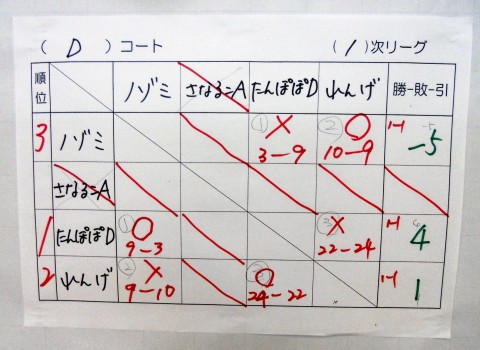 ( D ) コート ( 1 )次リーグ
順位 ノゾミ さなる=A たんぽぽD れんげ 勝-敗-引
3 ノゾミ ① × 3-9 ② ○ 10-9 1-1 -5
さなる=A
1 たんぽぽD ① ○ 9-3 ③ × 22-24 1-1 4
2 れんげ ② × 9-10 ③ ○ 24-22 1-1 1